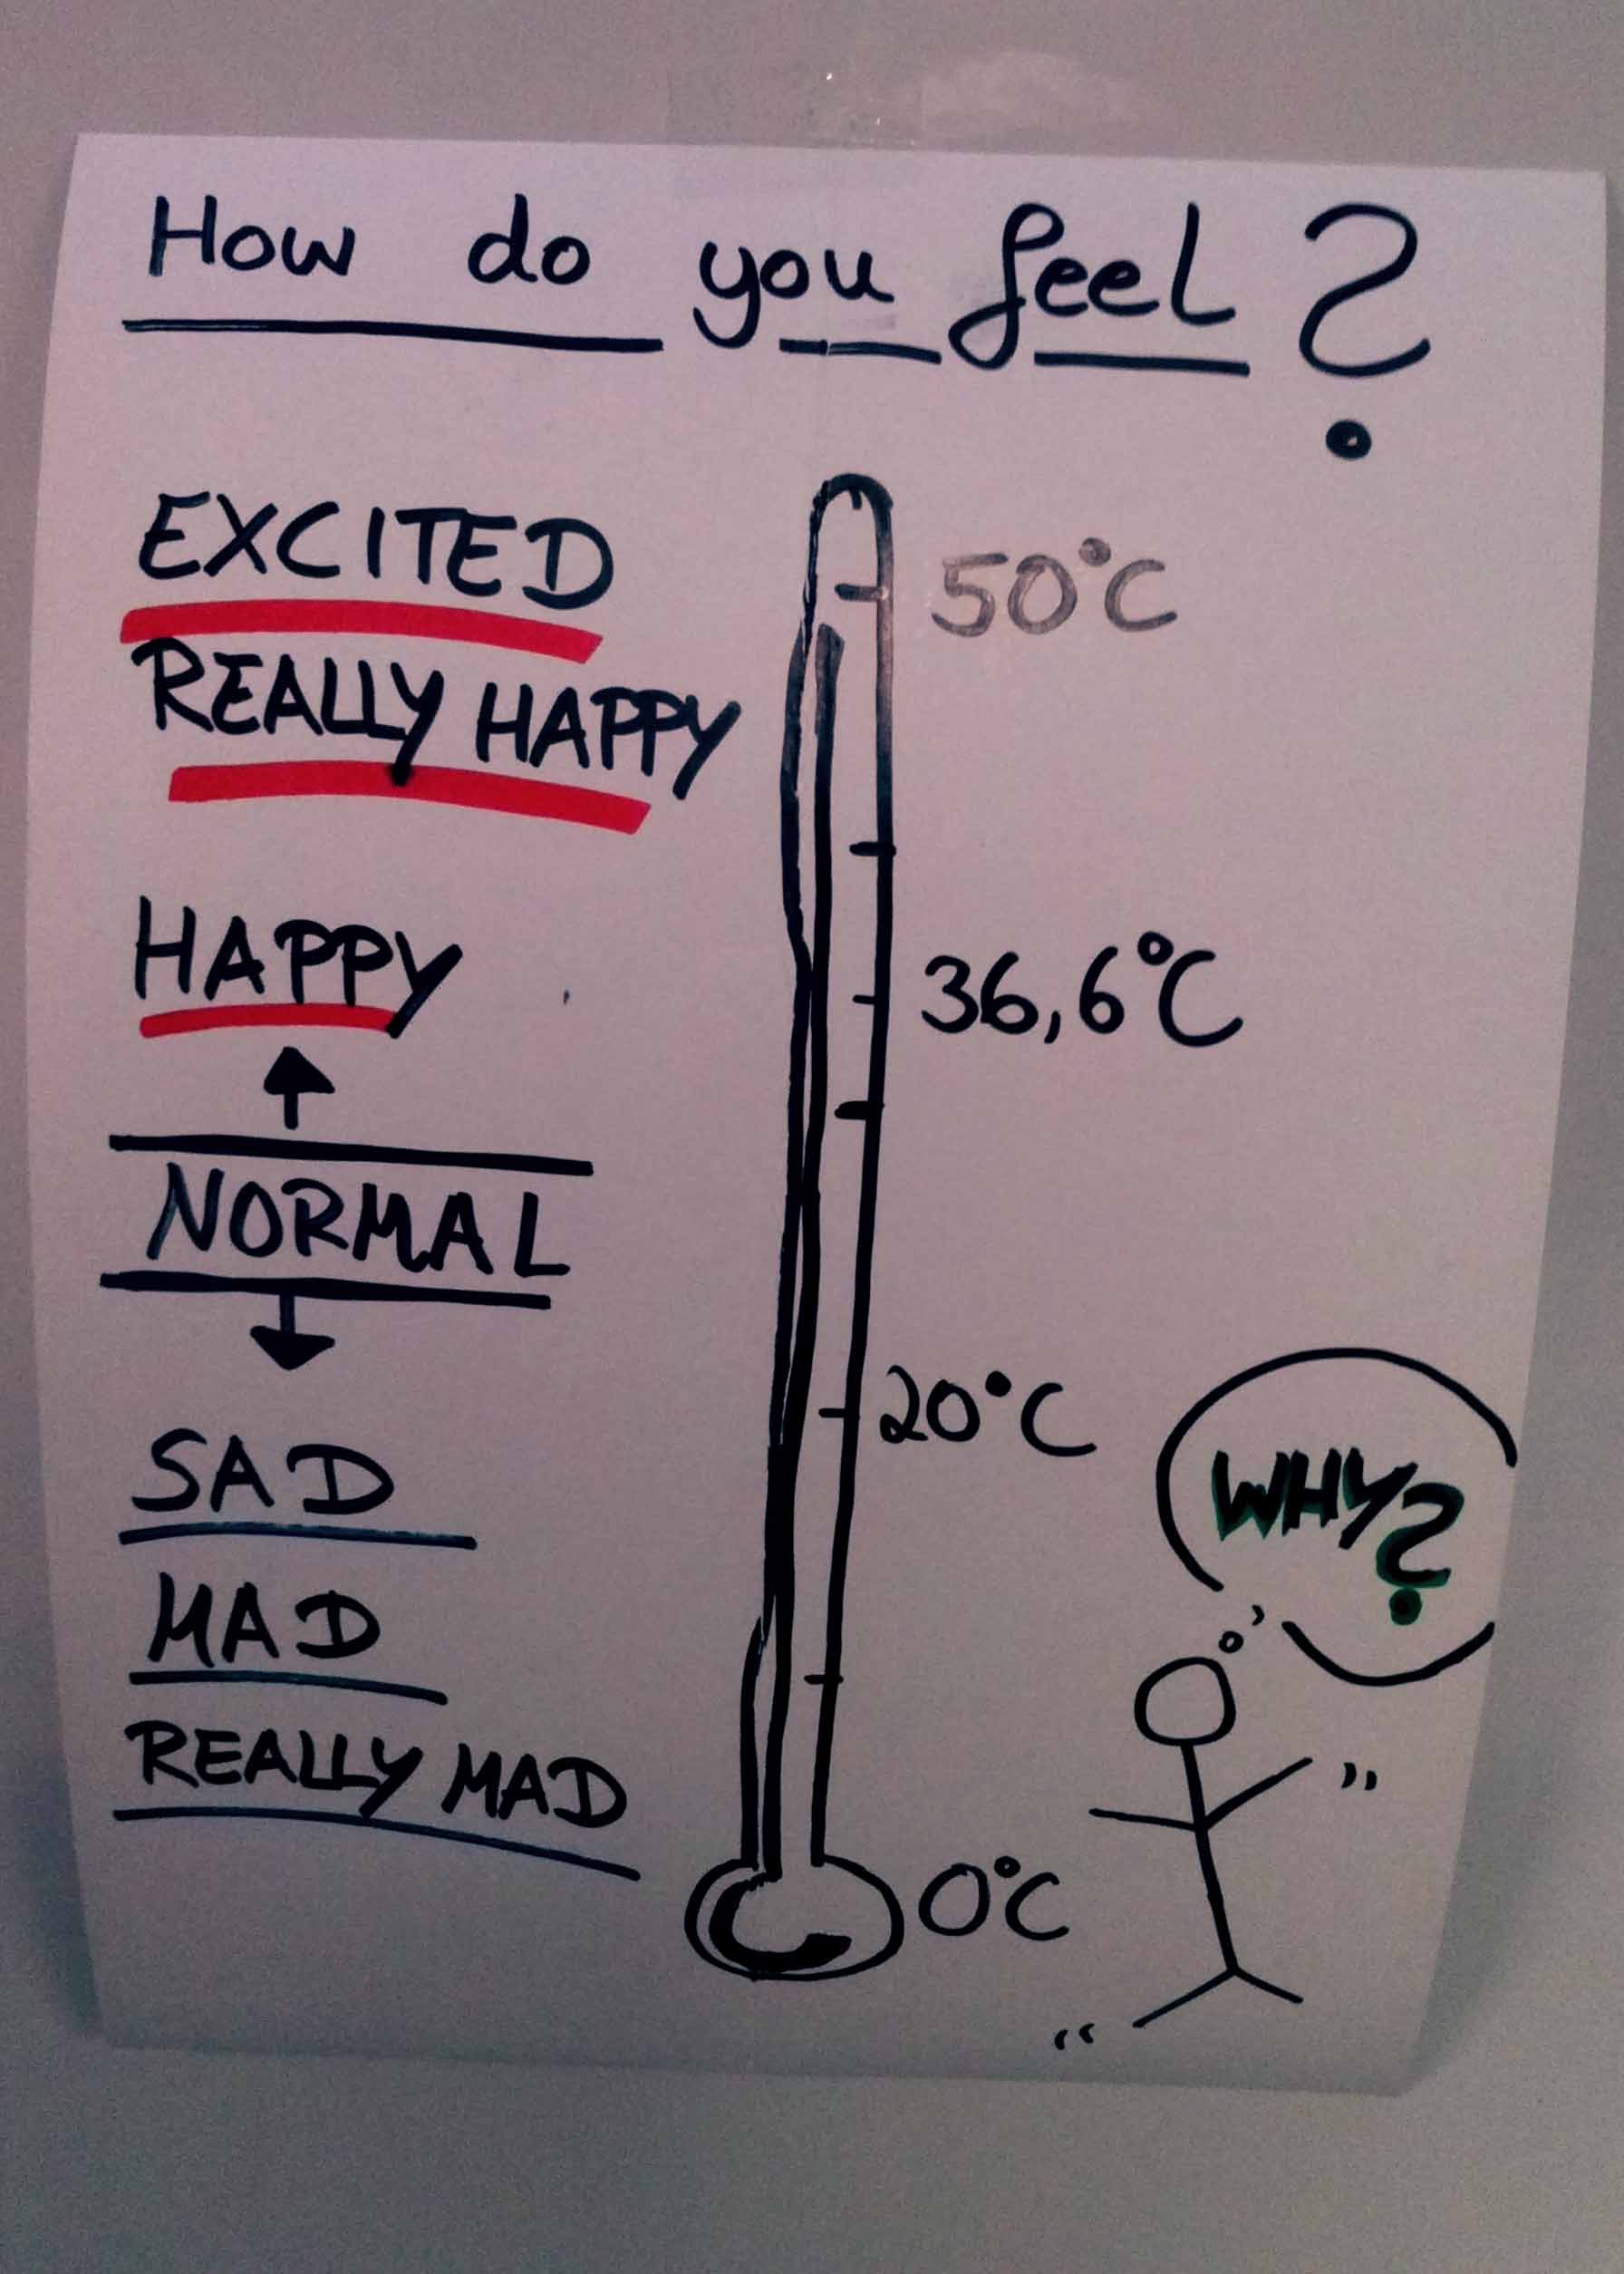 How do you feel?
EXCITED
50°C
REALLY HAPPY
HAPPY
36,6°C
NORMAL
20°C
SAD
WHY?
MAD
REALLY MAD
0°C